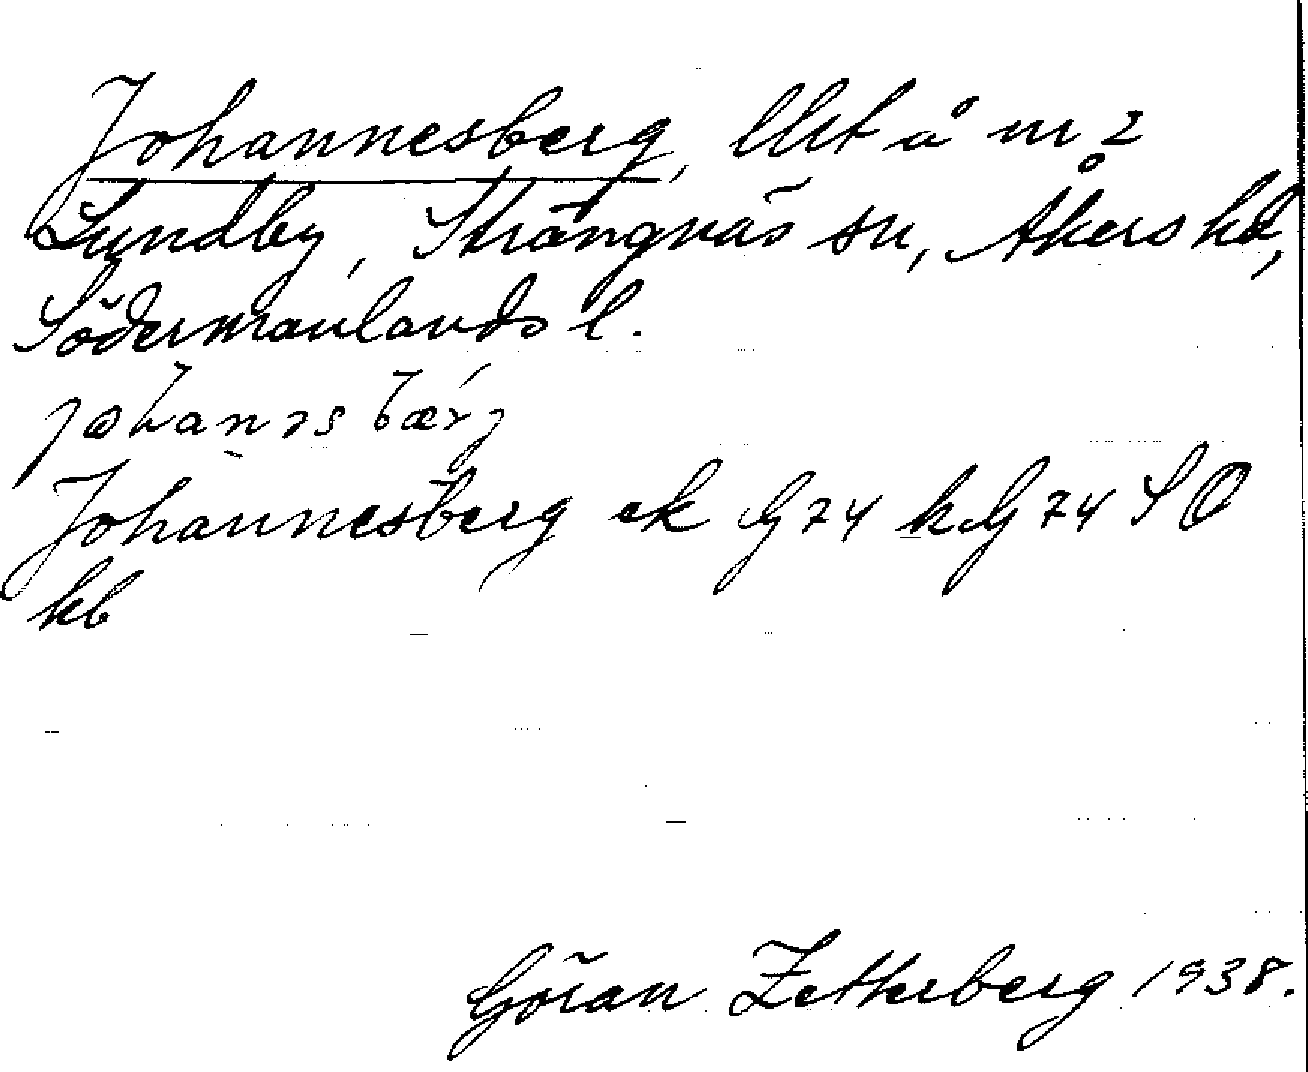 Johannesberg, llet å nr 2
Lundby, Strängnäs sn, Åkers hd,
Södermanlands l.
johanəsbærj
Johannesberg ek G 74 k.G 74 S O
kb
Göran Zetterberg 1938.